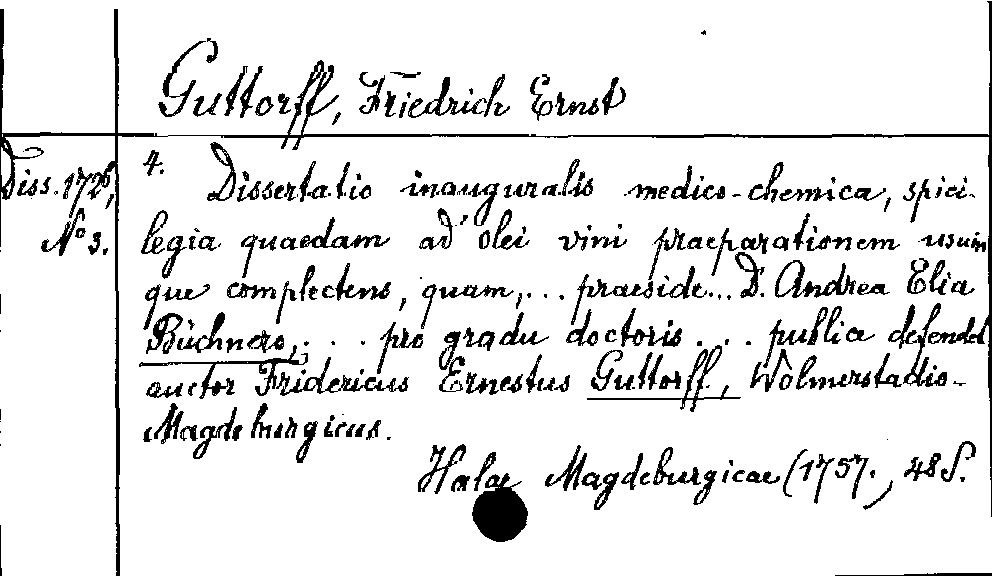 Guttorff, Friedrich Ernst
Diss. 1726,
No 3.
4.
Dissertatio inauguralis medico-chemica, spici-
legia quaedam ad olei vini praeparationem usum
que complectens, quam, ... praeside... D. Andrea Elia
Büchnero, ... pro gradu doctoris ... publice defendet
auctor Fridericus Ernestus Guttorff, Wolmerstadio-
Magdeburgicus.
Halae Magdeburgicae (1757.) 48 S.